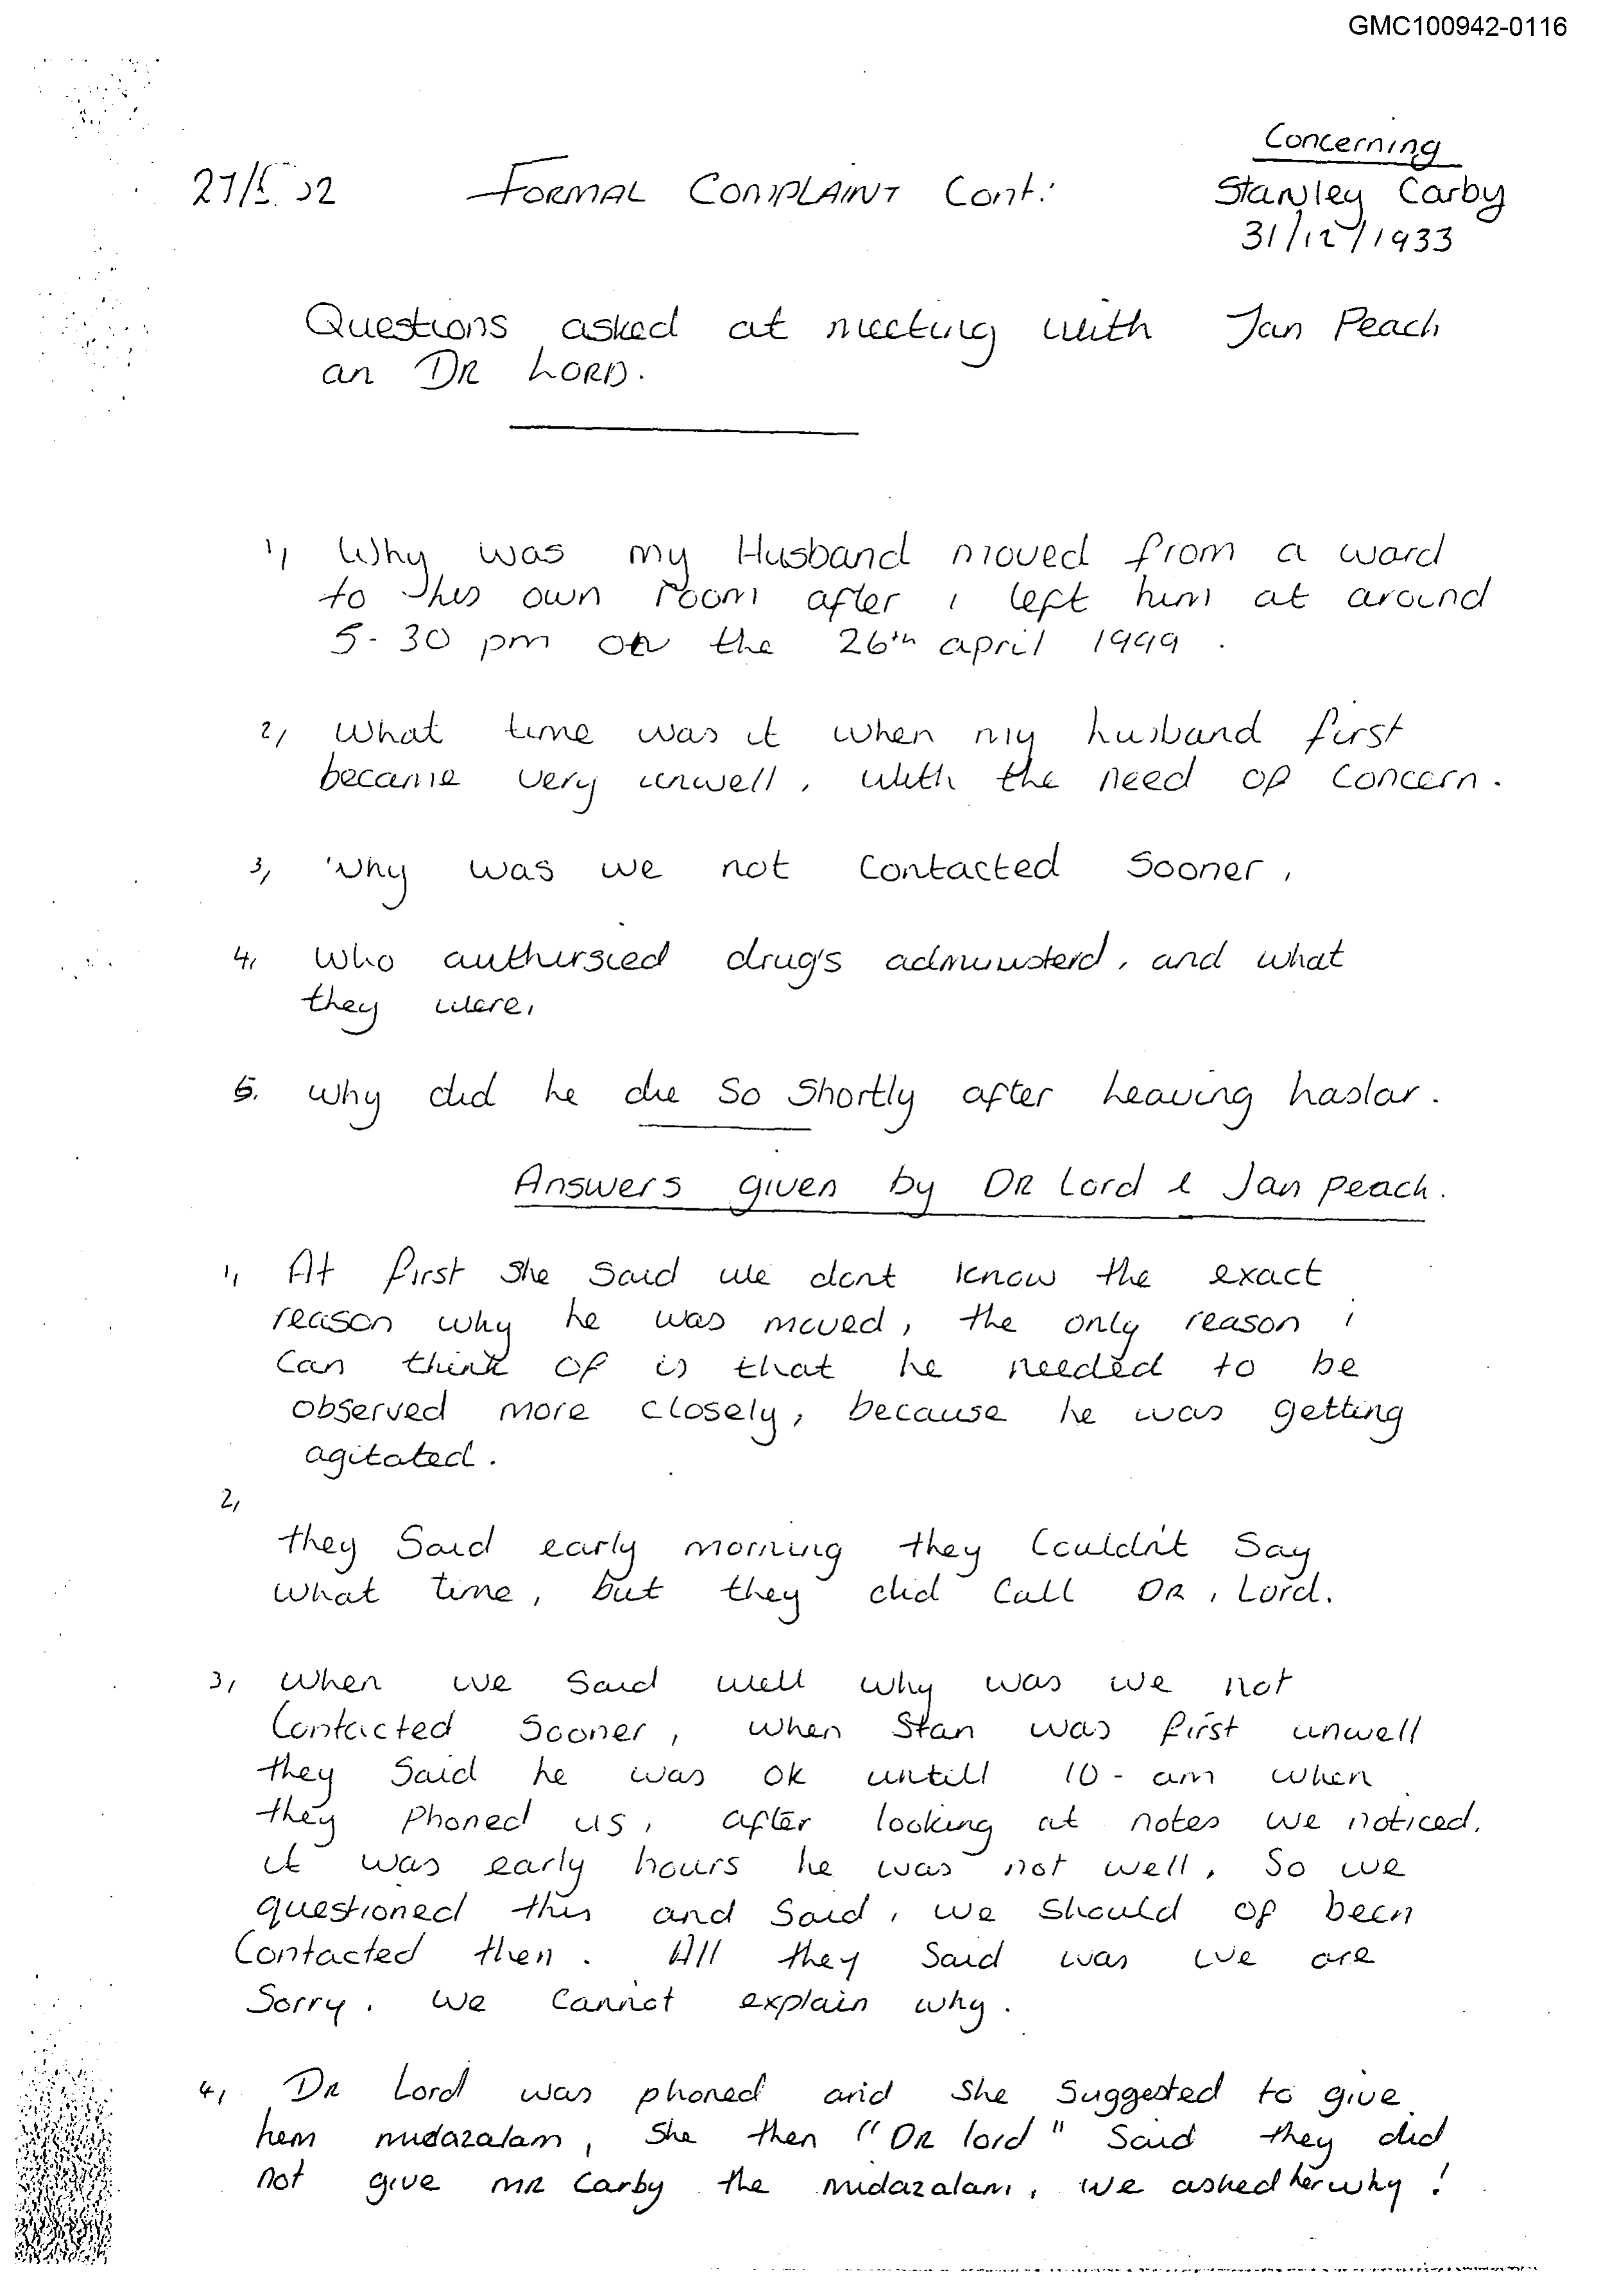 GMC100942-0116
Concerning
27/5 02 FORMAL COMPLAINT Cont: Stanley Carby
31/12/1933
Questions asked at meeting with Jan Peach
an DR LORD.
1, Why was my Husband moved from a ward
to his own room after i left him at around
5-30 pm on the 26th april 1999.
2, What time was it when my husband first
became very unwell, with the need of concern.
3, Why was we not contacted sooner,
4, Who authursied drug's adminusterd, and what
they were,
5. why did he die so shortly after leaving haslar.
Answers given by DR Lord & Jan peach.
1, At first she said we dont know the exact
reason why he was moved, the only reason i
can think of is that he needed to be
observed more closely, because he was getting
agitated.
2,
they said early morning they couldn't say
what time, but they did call DR, Lord.
3, When we said well why was we not
contacted sooner, when Stan was first unwell
they said he was ok untill 10-am when
they phoned us, after looking at notes we noticed,
it was early hours he was not well, so we
questioned this and said, we should of been
contacted then. All they said was we are
sorry. we cannot explain why.
4, DR Lord was phoned and she suggested to give
hem midazalam, she then "DR lord" said they did
not give MR Carby the midazalam, we asked her why!